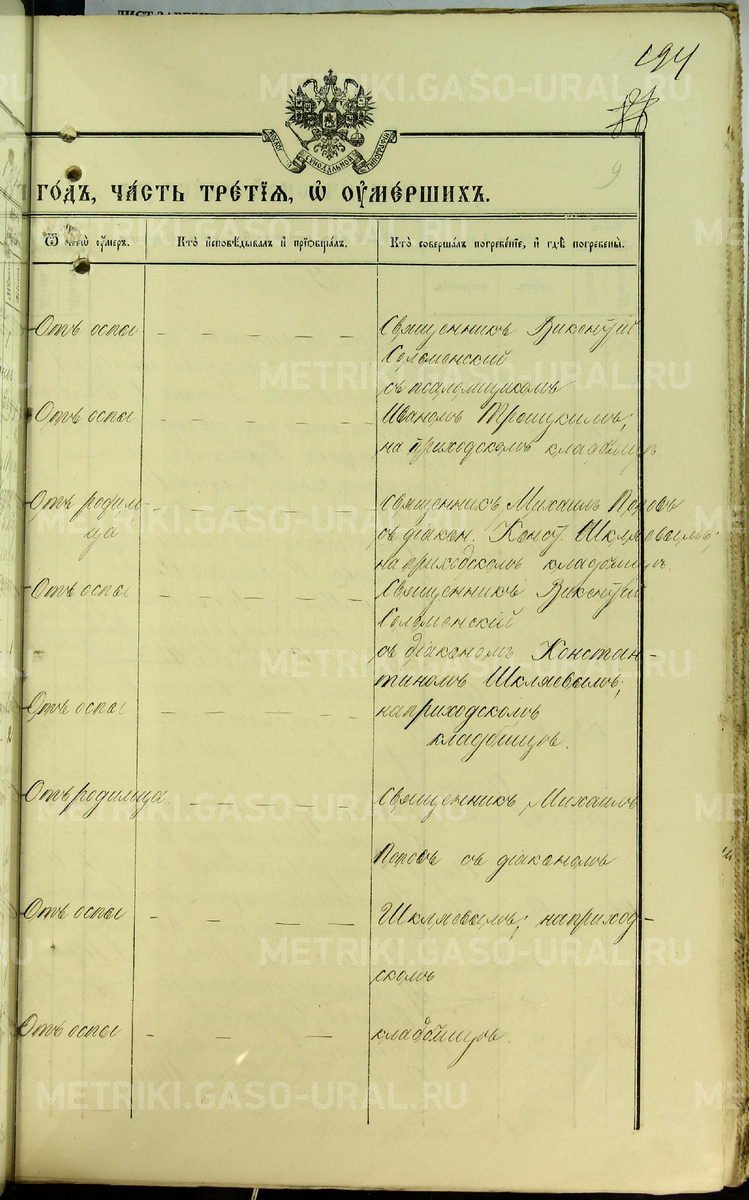 194
9
МОСКОВ. СУНОДАЛЬНОЙ ТИПОГРАФІИ
ГОДЪ, ЧАСТЬ ТРЕТІѦ, Ѡ ОУМЕРШИХЪ.
Ѿ чегѡ оумеръ.
Кто исповѣдывалъ и пріобщалъ.
Кто совершалъ погребеніе, и гдѣ погребены.
Отъ оспы — — — — — Священникъ Викентій
Соломенский
съ псаломщикомъ
Отъ оспы — — — — — Иваномъ Трошукимъ;
на приходскомъ кладбищѣ.
Отъ родим- — — — — — Священникъ Михаилъ Поповъ
ца съ діакон. Конст. Шкляевымъ;
на приходскомъ кладбищѣ.
Отъ оспы — — — — — Священникъ Викентій
Соломенскій
съ діакономъ Констан-
тиномъ Шкляевымъ;
Отъ оспы — — — — — на приходскомъ
кладбищѣ.
Отъ родимца — — — — Священникъ Михаилъ
Поповъ съ діакономъ
Отъ оспы — — — — Шкляевымъ; на приход-
скомъ
Отъ оспы — — — — кладбищѣ.
METRIKI.GASO-URAL.RU